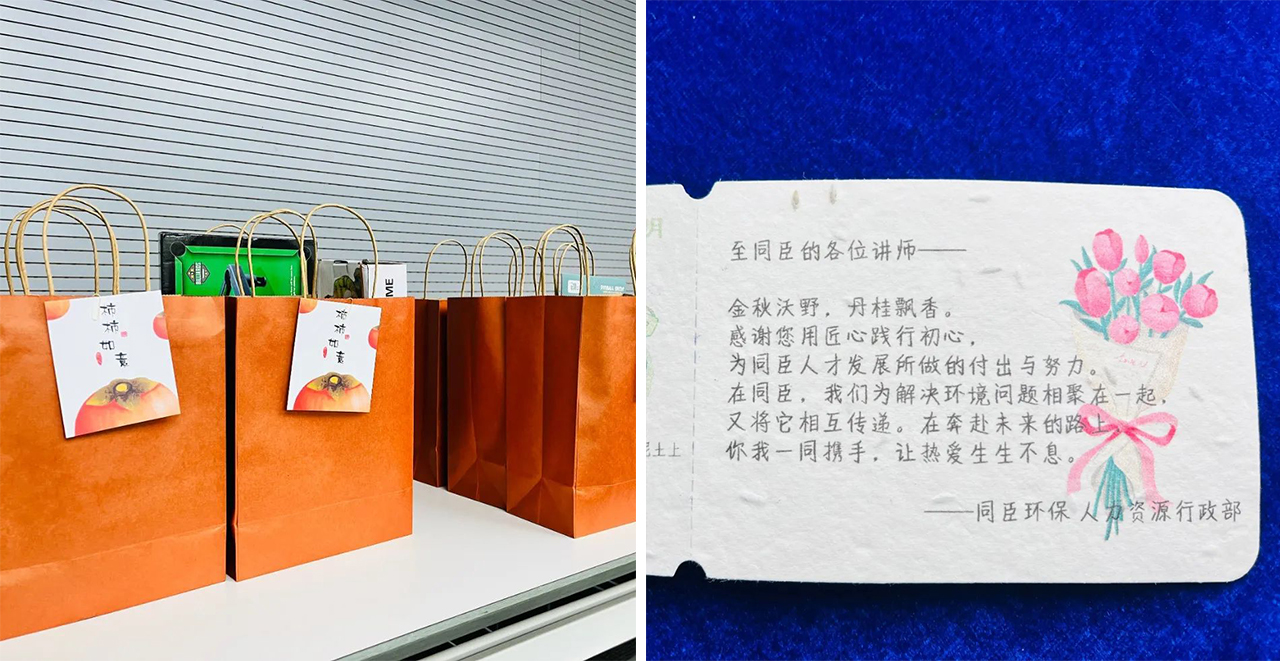 柿柿如意
柿柿如意
ME
月
至同臣的各位讲师——
金秋沃野，丹桂飘香。
感谢您用匠心践行初心，
为同臣人才发展所做的付出与努力。
在同臣，我们为解决环境问题相聚在一起，
又将它相互传递。在奔赴未来的路上，
你我一同携手，让热爱生生不息。
——同臣环保 人力资源行政部
土上